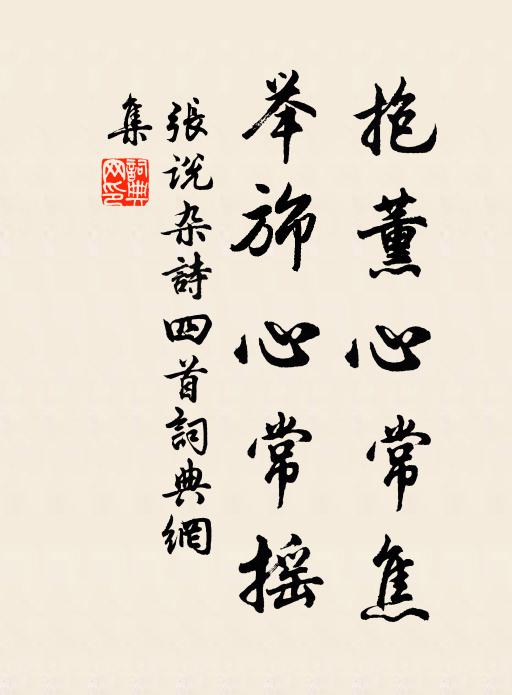 抱薰心常焦
举旆心常摇
張说杂詩四首詞典網
集
詞典網印